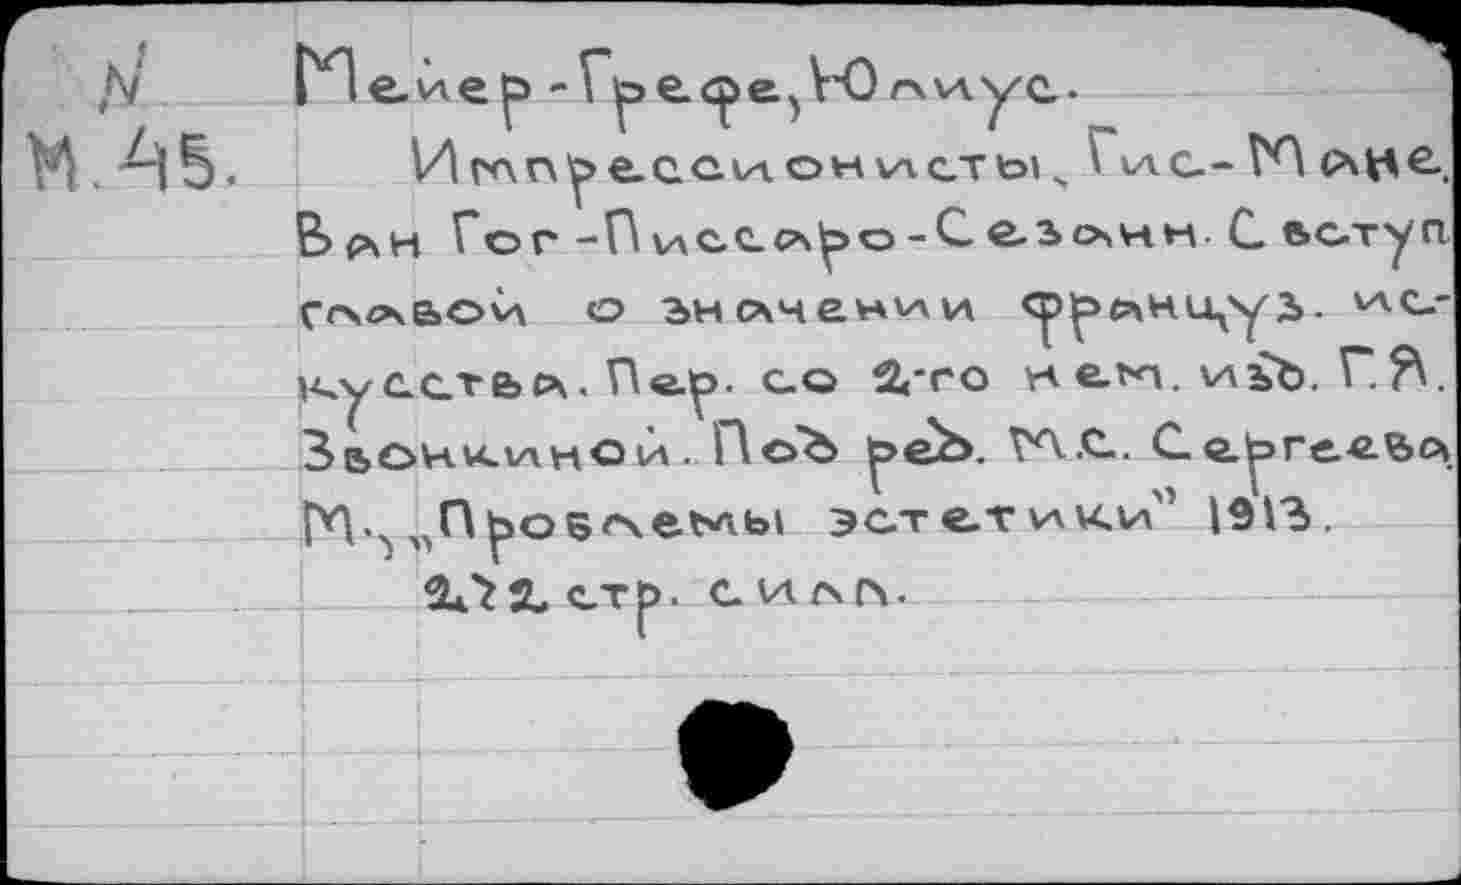 N
М.45.
Мейер-Грефе, Юлиус.
Импрессионисты, Гис-Мане.
Ван Гог-Писсаро-Сезанн. С вступ
главой о значении француз. ис-
кусства. Пер. со 2-го нем. изд. Г.Я.
Звонкиной. Под ред. М.С. Сергеева
М., „Проблемы эстетики" 1913.
272 стр. с илл.